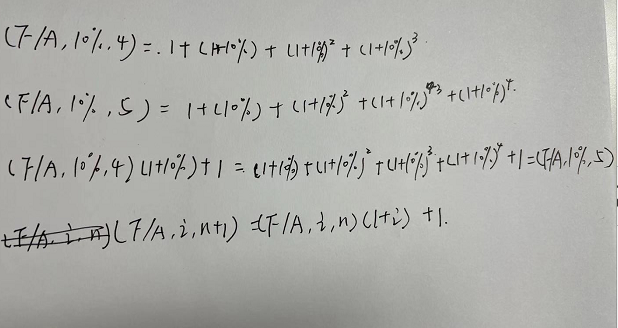 (F/A,10%,4)=.1+(1+10%)+(1+10%)²+(1+10%)³
(F/A,10%,5)=1+(10%)+(1+10%)²+(1+10%)³+(1+10%)⁴.
(F/A,10%,4)(1+10%)+1=(1+10%)+(1+10%)²+(1+10%)³+(1+10%)⁴+1=(F/A,10%,5)
(F/A,i,n)(F/A,i,n+1)=(F/A,i,n)(1+i)+1.